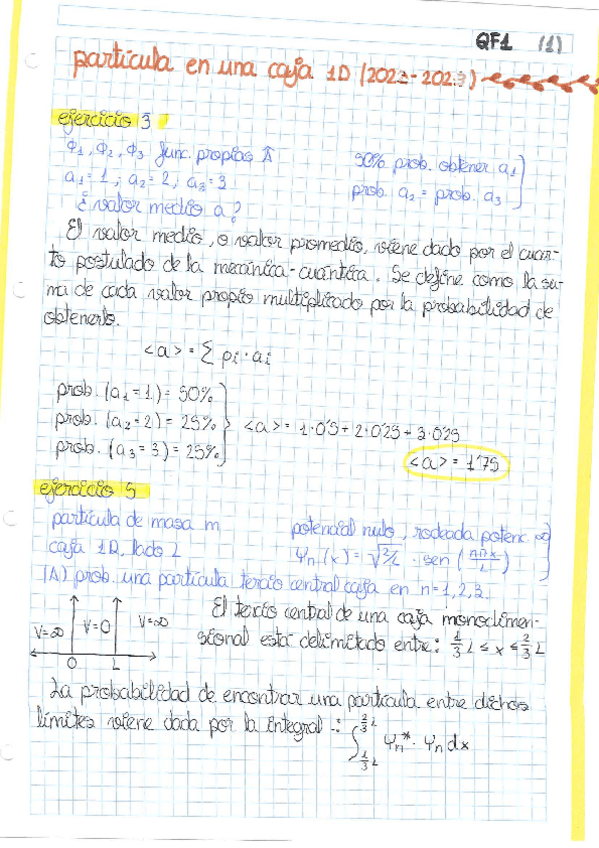 QF1 (1)
partícula en una caja 1D (2022-2023)
ejercicio 3
Φ1, Φ2, Φ3 func. propias Â
50% prob. obtener a1
a1=1; a2=2; a3=3
prob. a2 = prob. a3
¿valor medio a?
El valor medio, o valor promedio, viene dado por el cuar-
to postulado de la mecánica-cuántica. Se define como la su-
ma de cada valor propio multiplicado por la probabilidad de
obtenerlo.
<a> = Σ pi · ai
prob. (a1=1) = 50%
prob. (a2=2) = 25%
<a> = 1·0'5 + 2·0'25 + 3·0'25
prob. (a3=3) = 25%
<a> = 1'75
ejercicio 5
partícula de masa m
potencial nulo, rodeada potenc. ∞
caja 1D, lado L
Ψn(x) = √2/L · sen (nπx/L)
(A) prob. una partícula tercio central caja en n=1,2,3.
V=∞ V=0 V=∞
0 L
El tercio central de una caja monodimen-
sional está delimitado entre: 1/3 L ≤ x ≤ 2/3 L
La probabilidad de encontrar una partícula entre dichos
límites viene dada por la integral: ∫_{1/3 L}^{2/3 L} Ψn* · Ψn dx